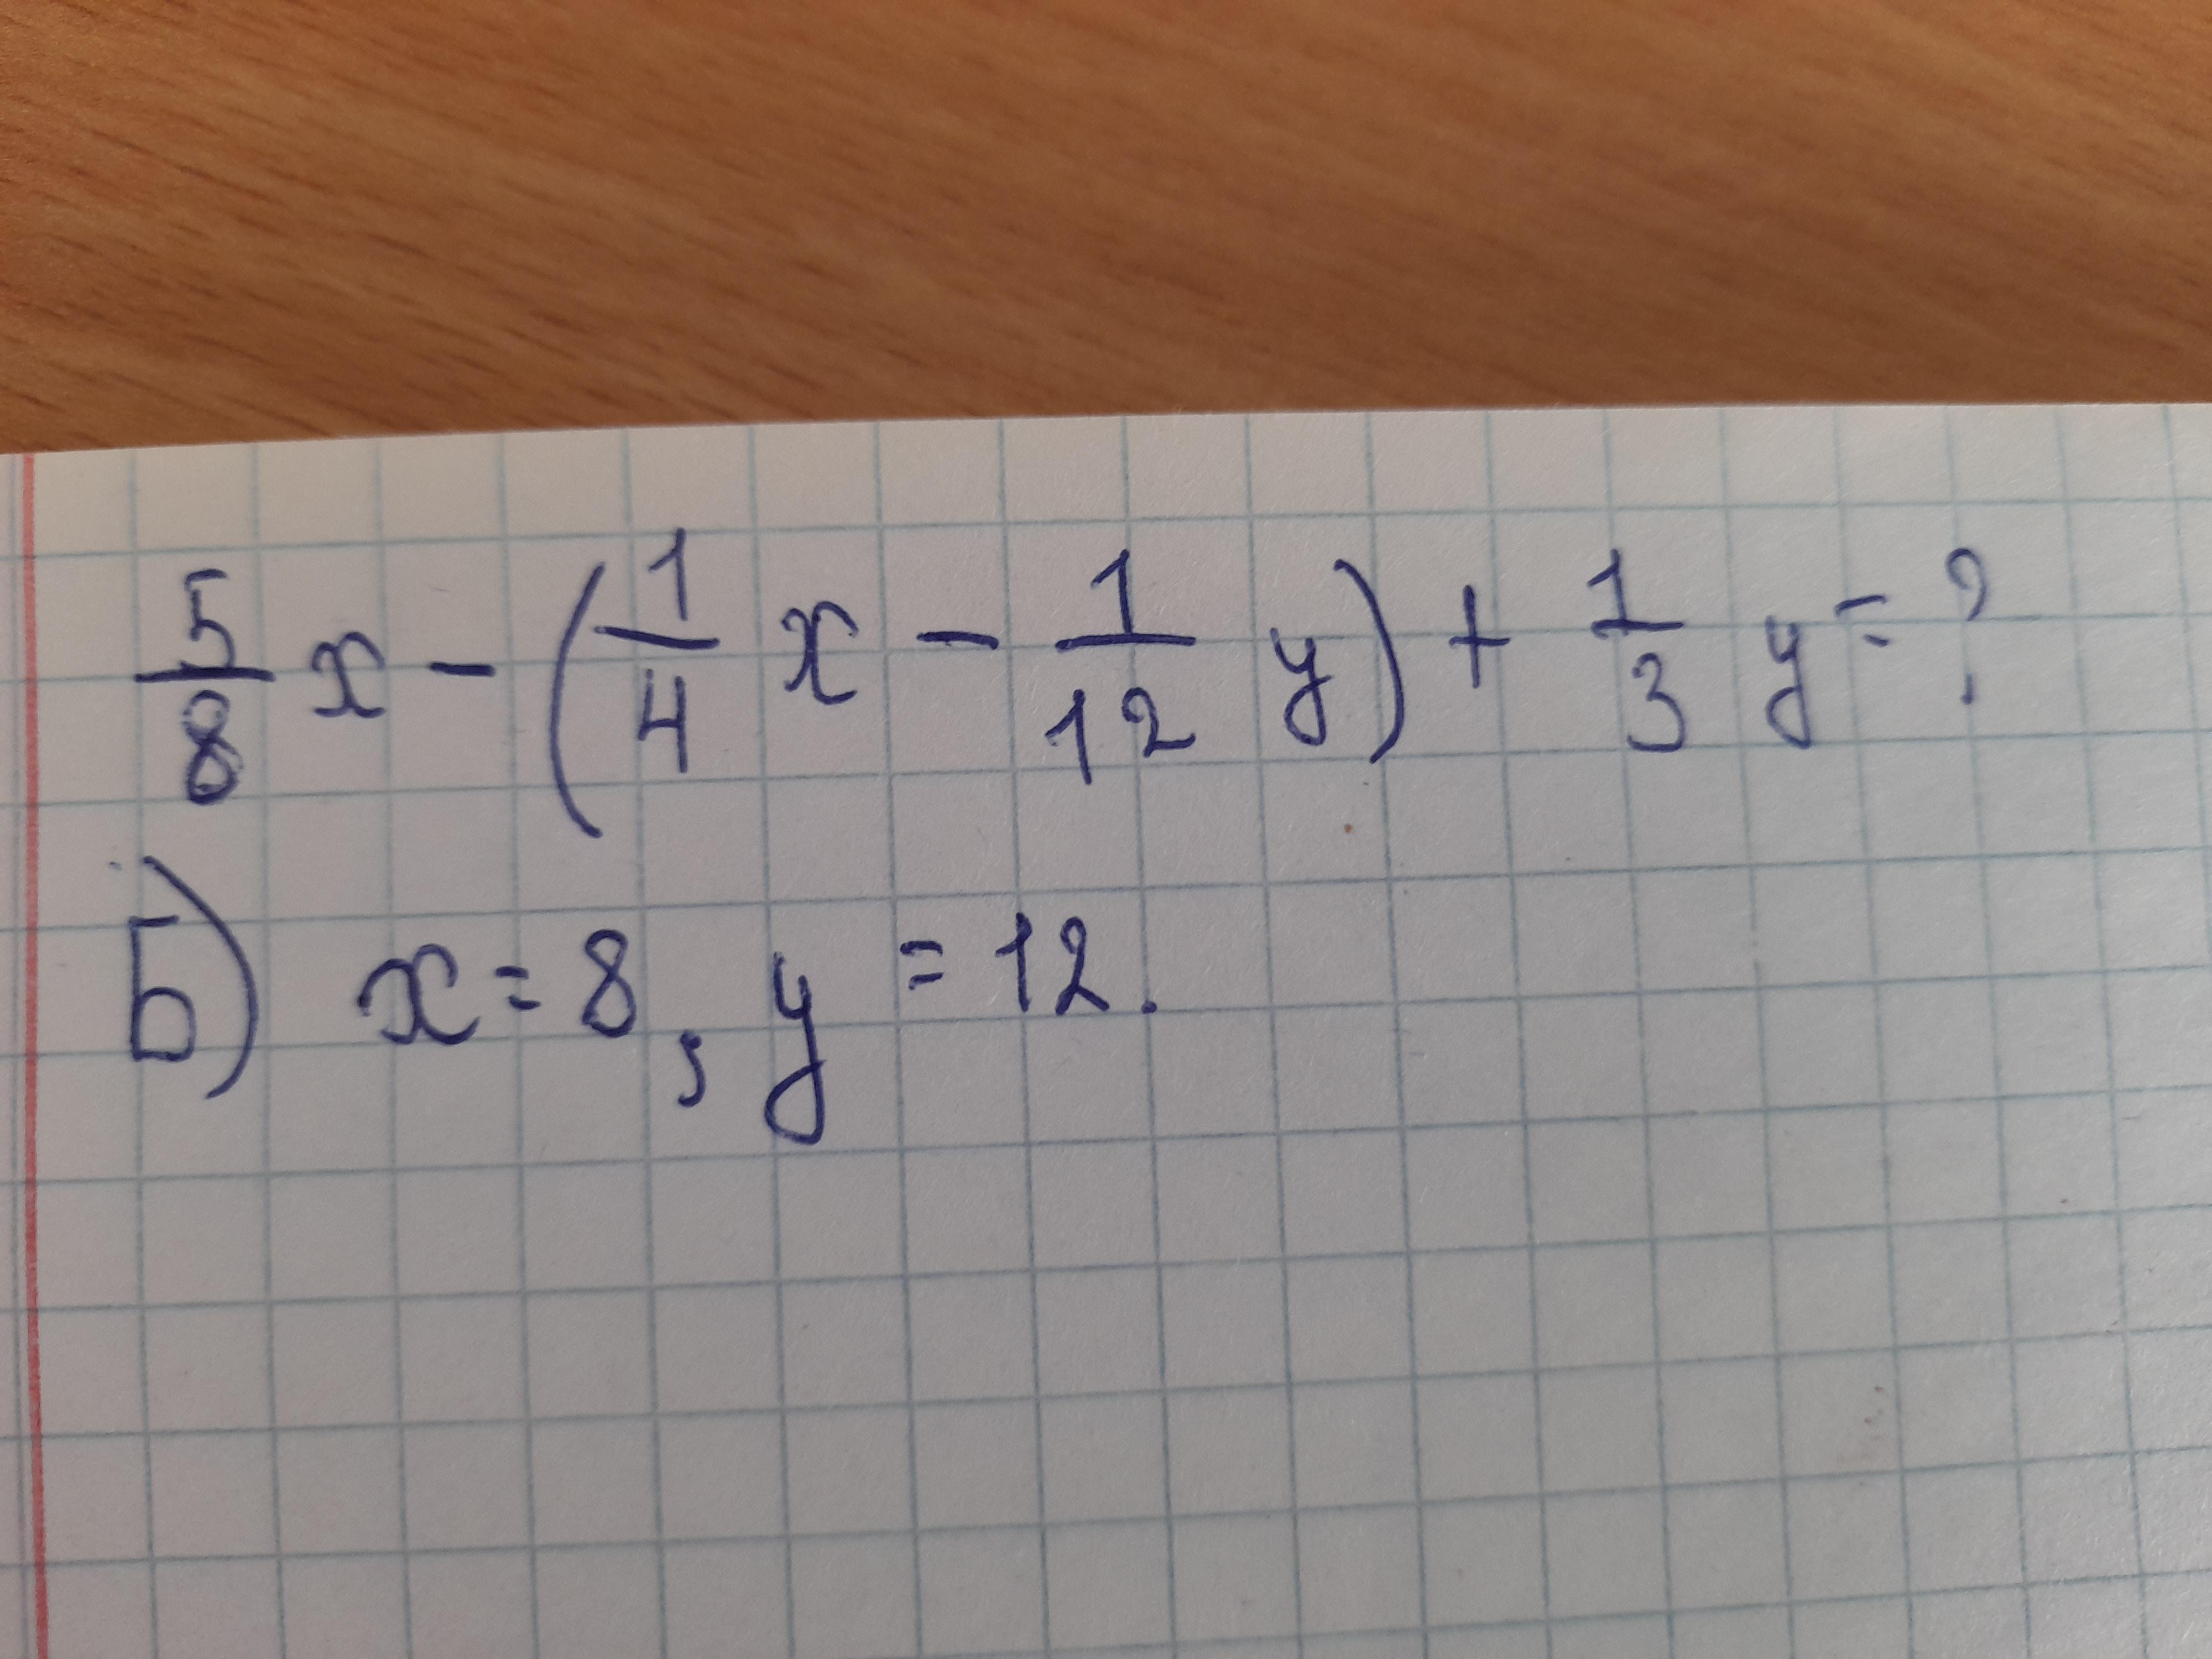 5/8 x - (1/4 x - 1/12 y) + 1/3 y = ?
Б) x = 8, y = 12.